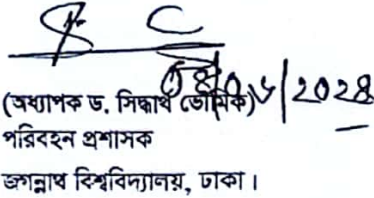 ২০২৪
(অধ্যাপক ড. সিদ্ধার্থ ভৌমিক)
পরিবহন প্রশাসক
জগন্নাথ বিশ্ববিদ্যালয়, ঢাকা।